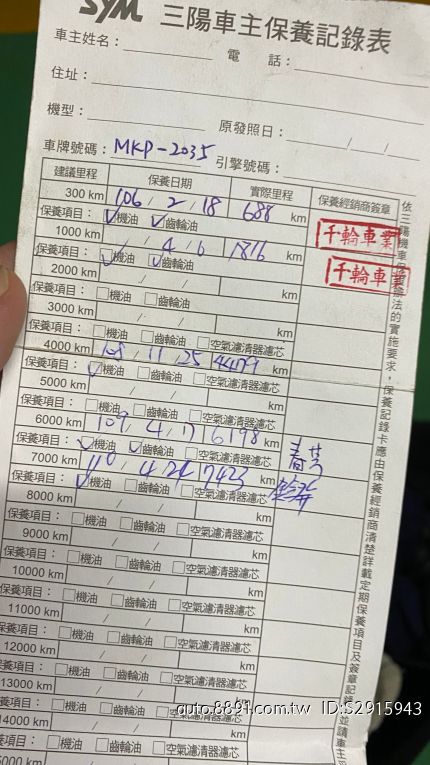 SYM 三陽車主保養記錄表
車主姓名： 電 話：
住址：
機型： 原發照日： / /
車牌號碼：MKP-2035 引擎號碼：
建議里程 保養日期 實際里程 保養經銷商簽章
300 km 106 / 2 / 18 688 km 千輪車業
保養項目：☑機油 ☑齒輪油
1000 km / 4 / 6 1816 km 千輪車業
保養項目：☑機油 ☑齒輪油
2000 km / / km
保養項目：□機油 □齒輪油
3000 km / / km
保養項目：□機油 □齒輪油 □空氣濾清器濾芯
4000 km 108 / 11 / 25 4479 km
保養項目：☑機油 □齒輪油 □空氣濾清器濾芯
5000 km / / km
保養項目：□機油 □齒輪油 □空氣濾清器濾芯
6000 km 109 / 4 / 17 6198 km
保養項目：☑機油 ☑齒輪油 □空氣濾清器濾芯
7000 km 110 / 4 / 26 7423 km
保養項目：☑機油 □齒輪油 □空氣濾清器濾芯
8000 km / / km
保養項目：□機油 □齒輪油 □空氣濾清器濾芯
9000 km / / km
保養項目：□機油 □齒輪油 □空氣濾清器濾芯
10000 km / / km
保養項目：□機油 □齒輪油 □空氣濾清器濾芯
11000 km / / km
保養項目：□機油 □齒輪油 □空氣濾清器濾芯
12000 km / / km
保養項目：□機油 □齒輪油 □空氣濾清器濾芯
13000 km / / km
保養項目：□機油 □齒輪油 □空氣濾清器濾芯
14000 km / / km
保養項目：□機油 □齒輪油 □空氣濾清器濾芯
依三陽機車保固辦法的實施要求，保養記錄卡應由保養經銷商清楚詳載定期保養項目及簽章記錄
auto.8891.com.tw ID:S2915943